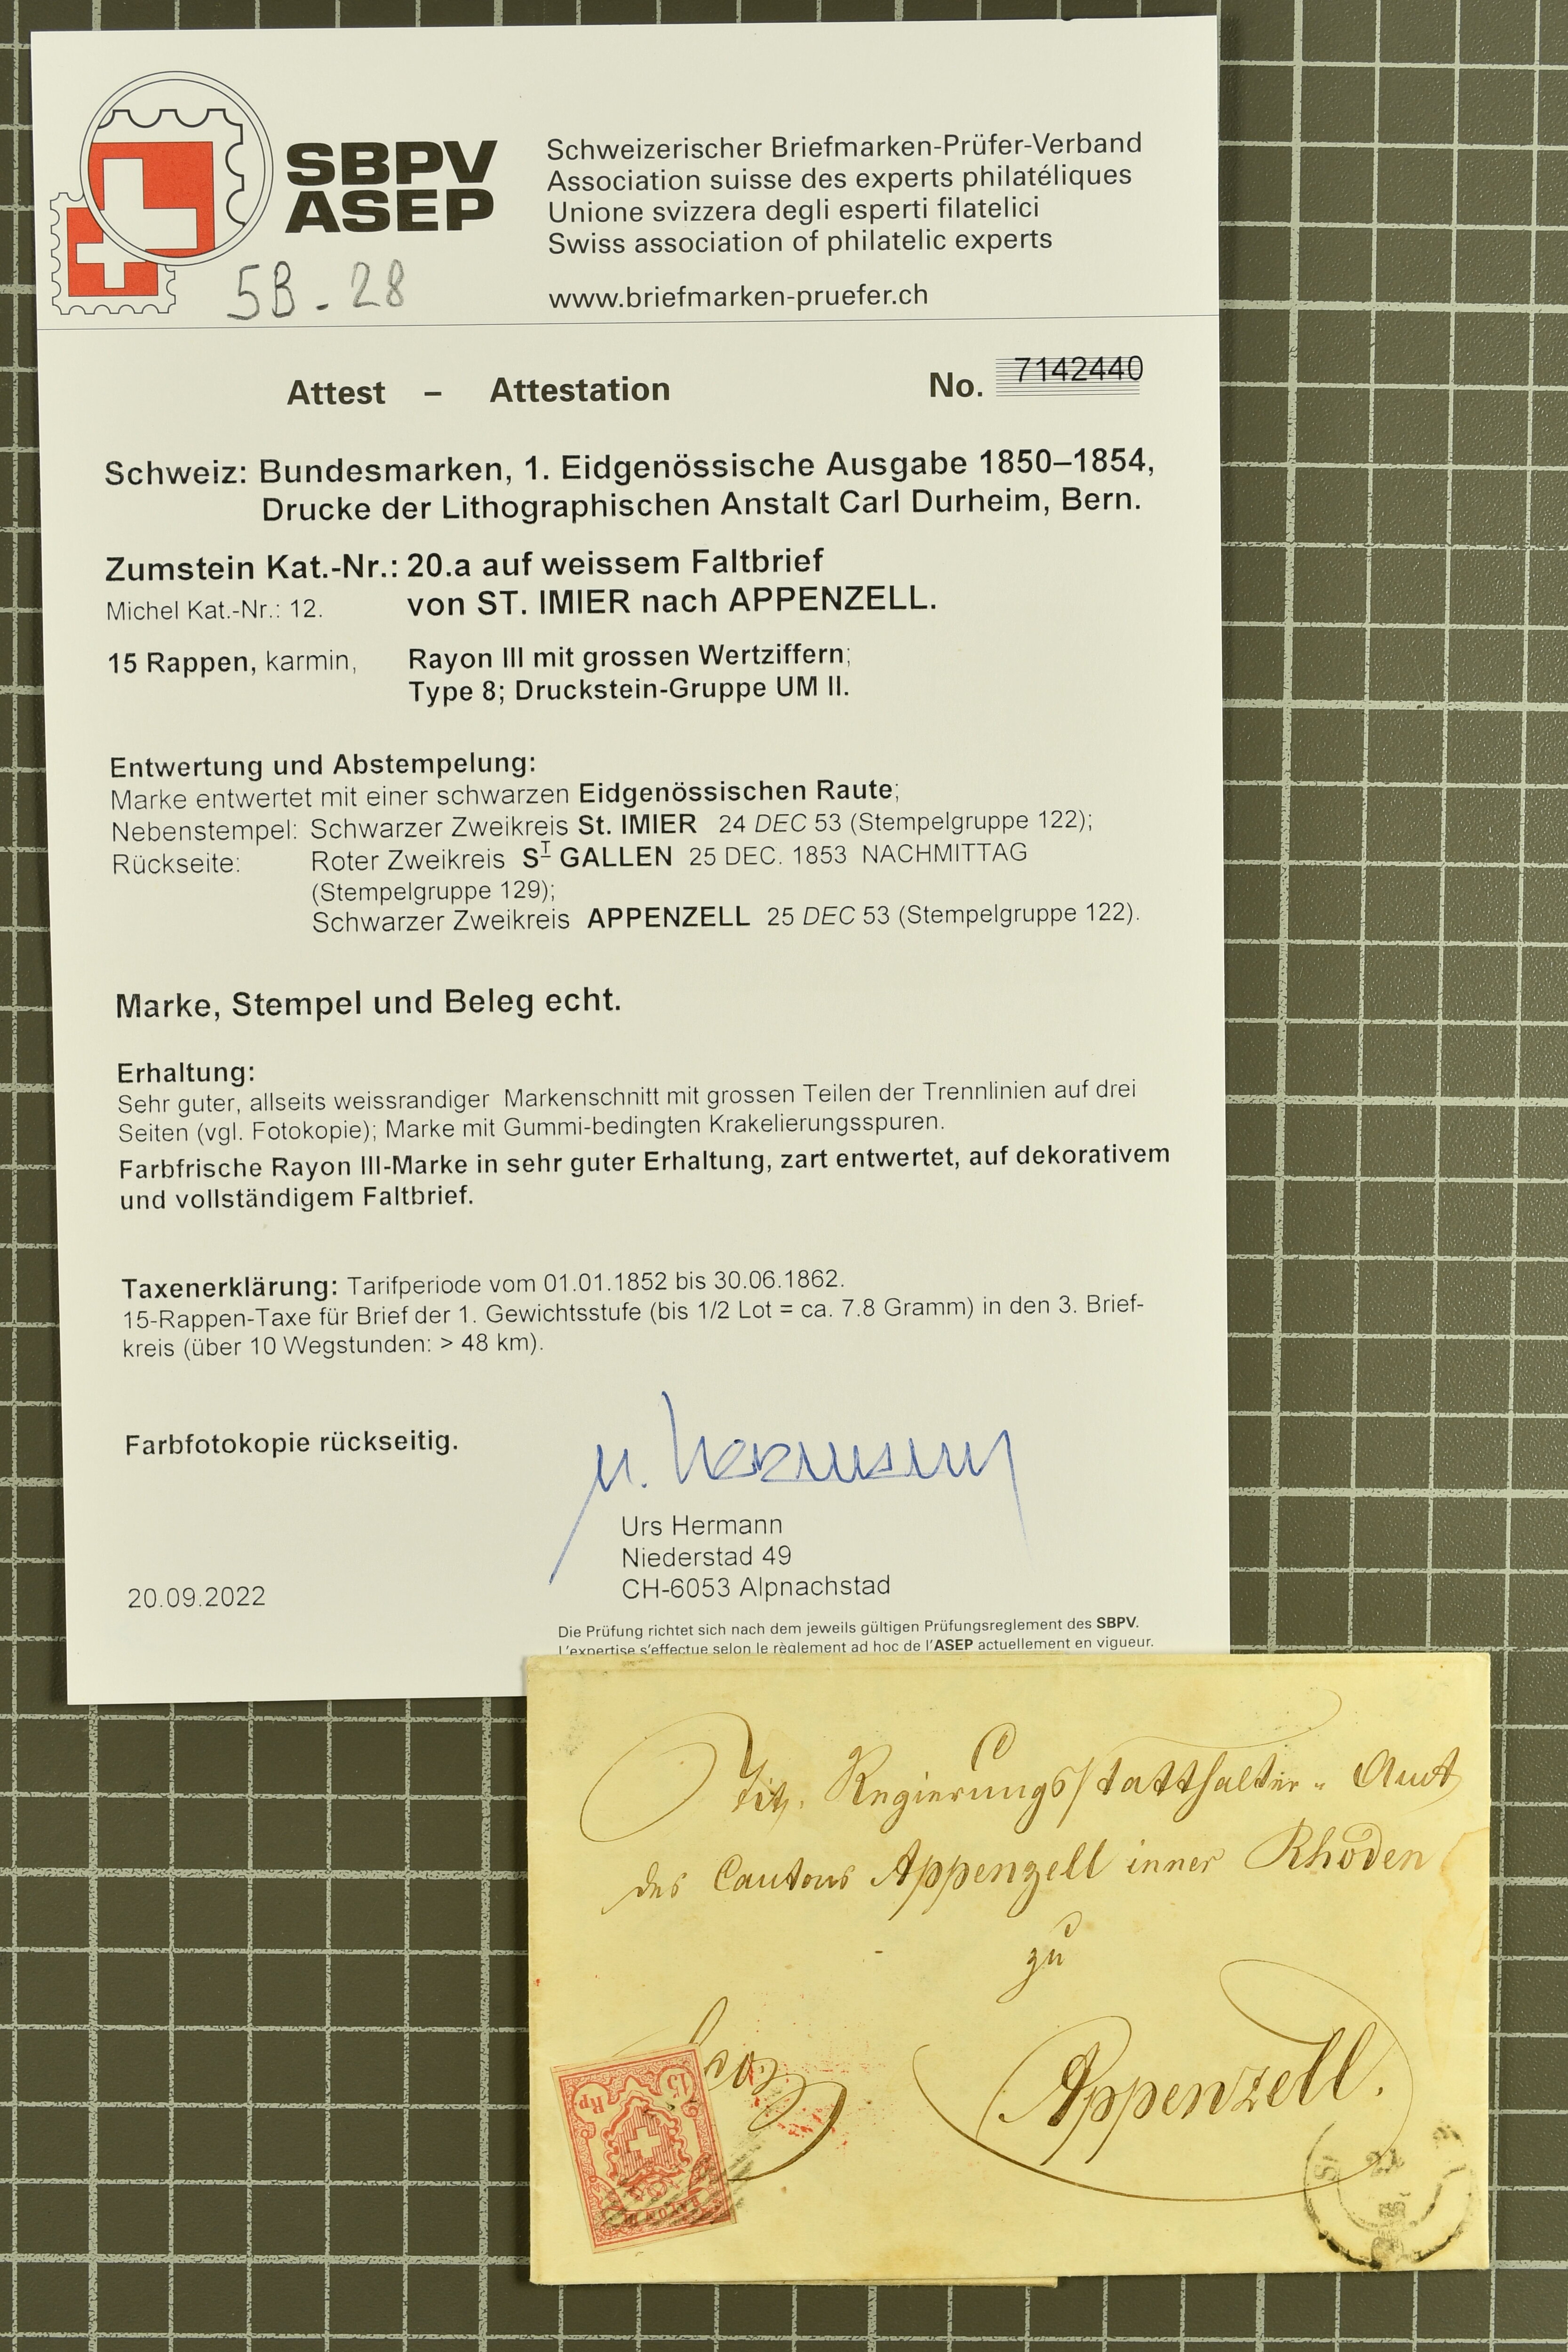 SBPV
ASEP
Schweizerischer Briefmarken-Prüfer-Verband
Association suisse des experts philatéliques
Unione svizzera degli esperti filatelici
Swiss association of philatelic experts
www.briefmarken-pruefer.ch
5B - 28
Attest – Attestation No. 7142440
Schweiz: Bundesmarken, 1. Eidgenössische Ausgabe 1850–1854,
Drucke der Lithographischen Anstalt Carl Durheim, Bern.
Zumstein Kat.-Nr.: 20.a auf weissem Faltbrief
Michel Kat.-Nr.: 12. von ST. IMIER nach APPENZELL.
15 Rappen, karmin, Rayon III mit grossen Wertziffern;
Type 8; Druckstein-Gruppe UM II.
Entwertung und Abstempelung:
Marke entwertet mit einer schwarzen Eidgenössischen Raute;
Nebenstempel: Schwarzer Zweikreis St. IMIER 24 DEC 53 (Stempelgruppe 122);
Rückseite: Roter Zweikreis ST GALLEN 25 DEC. 1853 NACHMITTAG
(Stempelgruppe 129);
Schwarzer Zweikreis APPENZELL 25 DEC 53 (Stempelgruppe 122).
Marke, Stempel und Beleg echt.
Erhaltung:
Sehr guter, allseits weissrandiger Markenschnitt mit grossen Teilen der Trennlinien auf drei
Seiten (vgl. Fotokopie); Marke mit Gummi-bedingten Krakelierungsspuren.
Farbfrische Rayon III-Marke in sehr guter Erhaltung, zart entwertet, auf dekorativem
und vollständigem Faltbrief.
Taxenerklärung: Tarifperiode vom 01.01.1852 bis 30.06.1862.
15-Rappen-Taxe für Brief der 1. Gewichtsstufe (bis 1/2 Lot = ca. 7.8 Gramm) in den 3. Brief-
kreis (über 10 Wegstunden: > 48 km).
Farbfotokopie rückseitig.
U. Hermann
Urs Hermann
Niederstad 49
CH-6053 Alpnachstad
20.09.2022
Die Prüfung richtet sich nach dem jeweils gültigen Prüfungsreglement des SBPV.
L'expertise s'effectue selon le règlement ad hoc de l'ASEP actuellement en vigueur.
Tit. Regierungsstatthalter-Amt
des Cantons Appenzell inner Rhoden
zu
Appenzell.
15 Rp